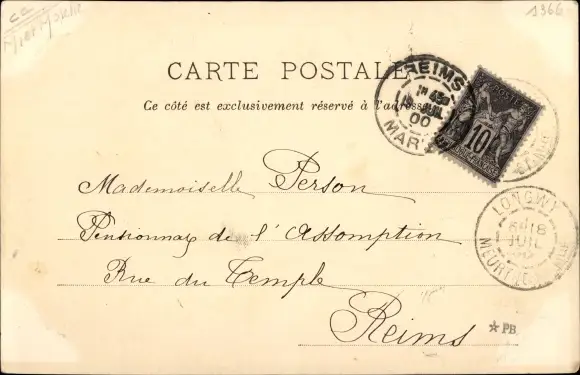 CC
1366
CARTE POSTALE
Ce côté est exclusivement réservé à l'adresse
REIMS
JUIL
00
MARNE
10
LONGWY
18
JUIL
Mademoiselle Person
Pensionnat de l'Assomption
Rue du Temple
Reims
*PB